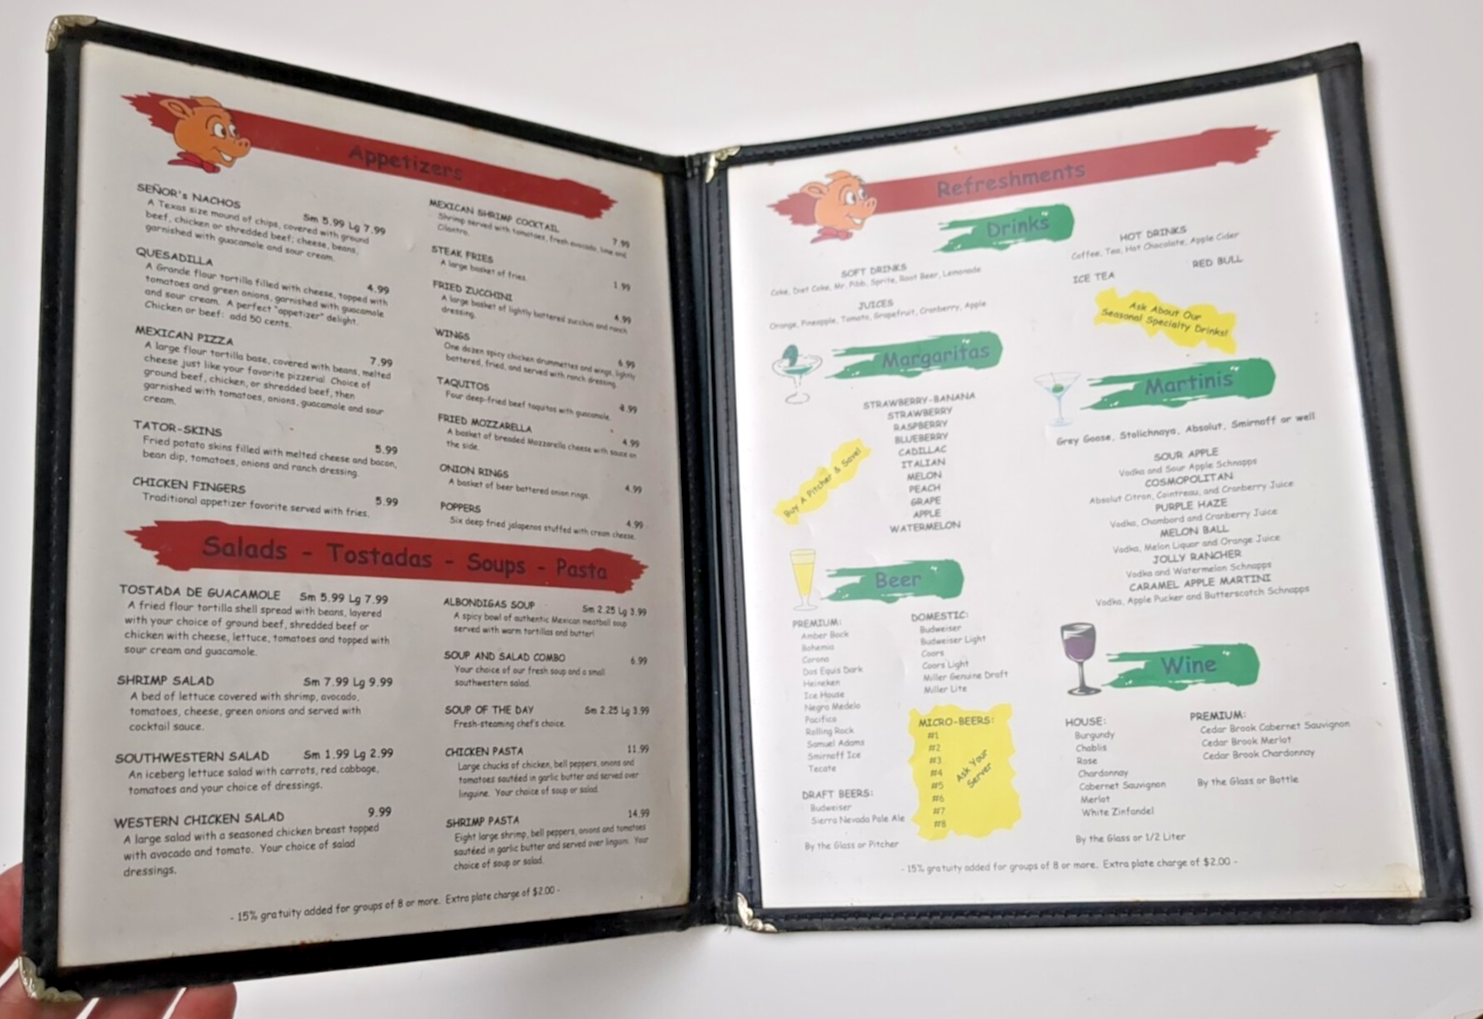 Appetizers
SEÑOR's NACHOS
Sm 5.99 Lg 7.99
A Texas size mound of chips, covered with ground
beef, chicken or shredded beef; cheese, beans,
garnished with guacamole and sour cream.
QUESADILLA
4.99
A Grande flour tortilla filled with cheese, topped with
tomatoes and green onions, garnished with guacamole
and sour cream. A perfect "appetizer" delight.
Chicken or beef: add 50 cents.
MEXICAN PIZZA
7.99
A large flour tortilla base, covered with beans, melted
cheese just like your favorite pizzeria! Choice of
ground beef, chicken, or shredded beef, then
garnished with tomatoes, onions, guacamole and sour
cream.
TATOR-SKINS
5.99
Fried potato skins filled with melted cheese and bacon,
bean dip, tomatoes, onions and ranch dressing.
CHICKEN FINGERS
5.99
Traditional appetizer favorite served with fries.
MEXICAN SHRIMP COCKTAIL
7.99
Shrimp served with tomatoes, fresh avocado, lime and
Cilantro.
STEAK FRIES
1.99
A large basket of fries.
FRIED ZUCCHINI
4.99
A large basket of lightly battered zucchini and ranch
dressing.
WINGS
6.99
One dozen spicy chicken drummettes and wings, lightly
battered, fried, and served with ranch dressing.
TAQUITOS
4.99
Four deep-fried beef taquitos with guacamole.
FRIED MOZZARELLA
4.99
A basket of breaded Mozzarella cheese with sauce on
the side.
ONION RINGS
4.99
A basket of beer battered onion rings.
POPPERS
4.99
Six deep fried jalapenos stuffed with cream cheese.
Salads - Tostadas - Soups - Pasta
TOSTADA DE GUACAMOLE Sm 5.99 Lg 7.99
A fried flour tortilla shell spread with beans, layered
with your choice of ground beef, shredded beef or
chicken with cheese, lettuce, tomatoes and topped with
sour cream and guacamole.
SHRIMP SALAD Sm 7.99 Lg 9.99
A bed of lettuce covered with shrimp, avocado,
tomatoes, cheese, green onions and served with
cocktail sauce.
SOUTHWESTERN SALAD Sm 1.99 Lg 2.99
An iceberg lettuce salad with carrots, red cabbage,
tomatoes and your choice of dressings.
WESTERN CHICKEN SALAD 9.99
A large salad with a seasoned chicken breast topped
with avocado and tomato. Your choice of salad
dressings.
ALBONDIGAS SOUP Sm 2.25 Lg 3.99
A spicy bowl of authentic Mexican meatball soup
served with warm tortillas and butter!
SOUP AND SALAD COMBO 6.99
Your choice of our fresh soup and a small
southwestern salad.
SOUP OF THE DAY Sm 2.25 Lg 3.99
Fresh-steaming chef's choice.
CHICKEN PASTA 11.99
Large chucks of chicken, bell peppers, onions and
tomatoes sautéed in garlic butter and served over
linguine. Your choice of soup or salad.
SHRIMP PASTA 14.99
Eight large shrimp, bell peppers, onions and tomatoes
sautéed in garlic butter and served over linguini. Your
choice of soup or salad.
- 15% gratuity added for groups of 8 or more. Extra plate charge of $2.00 -
Refreshments
Drinks
SOFT DRINKS
Coke, Diet Coke, Mr. Pibb, Sprite, Root Beer, Lemonade
JUICES
Orange, Pineapple, Tomato, Grapefruit, Cranberry, Apple
HOT DRINKS
Coffee, Tea, Hot Chocolate, Apple Cider
ICE TEA
RED BULL
Ask About Our
Seasonal Specialty Drinks!
Margaritas
STRAWBERRY-BANANA
STRAWBERRY
RASPBERRY
BLUEBERRY
CADILLAC
ITALIAN
MELON
PEACH
GRAPE
APPLE
WATERMELON
Buy A Pitcher & Save!
Martinis
Grey Goose, Stolichnaya, Absolut, Smirnoff or well
SOUR APPLE
Vodka and Sour Apple Schnapps
COSMOPOLITAN
Absolut Citron, Cointreau, and Cranberry Juice
PURPLE HAZE
Vodka, Chambord and Cranberry Juice
MELON BALL
Vodka, Melon Liquor and Orange Juice
JOLLY RANCHER
Vodka and Watermelon Schnapps
CARAMEL APPLE MARTINI
Vodka, Apple Pucker and Butterscotch Schnapps
Beer
PREMIUM:
Amber Bock
Bohemia
Corona
Dos Equis Dark
Heineken
Ice House
Negra Medelo
Pacifico
Rolling Rock
Samuel Adams
Smirnoff Ice
Tecate
DRAFT BEERS:
Budweiser
Sierra Nevada Pale Ale
By the Glass or Pitcher
DOMESTIC:
Budweiser
Budweiser Light
Coors
Coors Light
Miller Genuine Draft
Miller Lite
MICRO-BEERS:
#1
#2
#3
#4
#5
#6
#7
#8
Ask Your
Server
Wine
HOUSE:
Burgundy
Chablis
Rose
Chardonnay
Cabernet Sauvignon
Merlot
White Zinfandel
By the Glass or 1/2 Liter
PREMIUM:
Cedar Brook Cabernet Sauvignon
Cedar Brook Merlot
Cedar Brook Chardonnay
By the Glass or Bottle
- 15% gratuity added for groups of 8 or more. Extra plate charge of $2.00 -